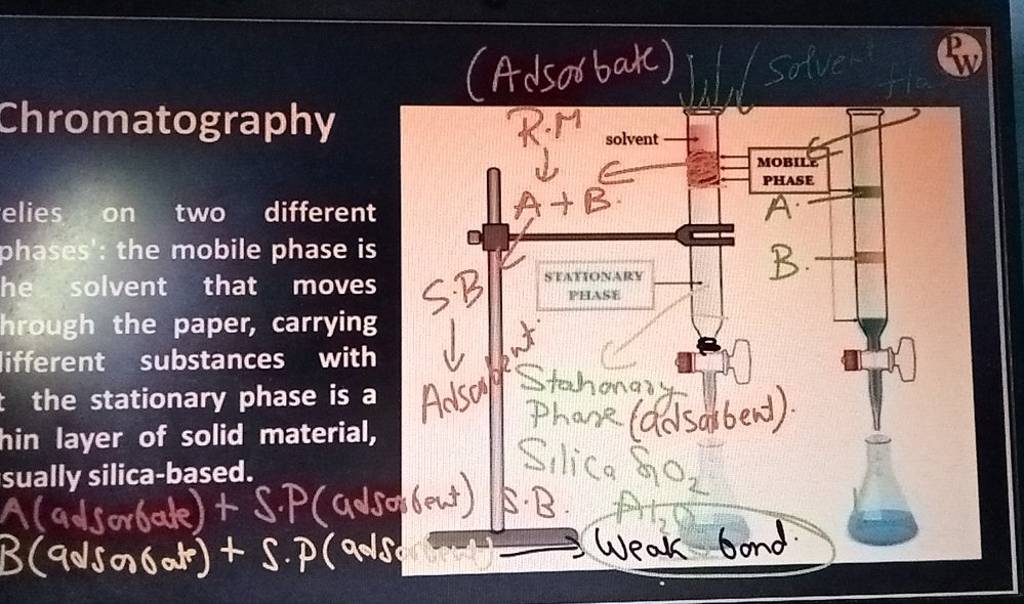 (Adsorbate)
Solvent
PW
Chromatography
R.M
solvent
MOBILE
PHASE
A + B.
A.
B.
elies on two different
phases': the mobile phase is
he solvent that moves
hrough the paper, carrying
ifferent substances with
t the stationary phase is a
hin layer of solid material,
sually silica-based.
STATIONARY
PHASE
S.B
Adsorbent
Stationary
Phase (adsorbent).
Silica SiO2
A(adsorbate) + S.P(adsorbent) S.B.
B(adsorbate) + S.P(adsorbent) Weak bond.